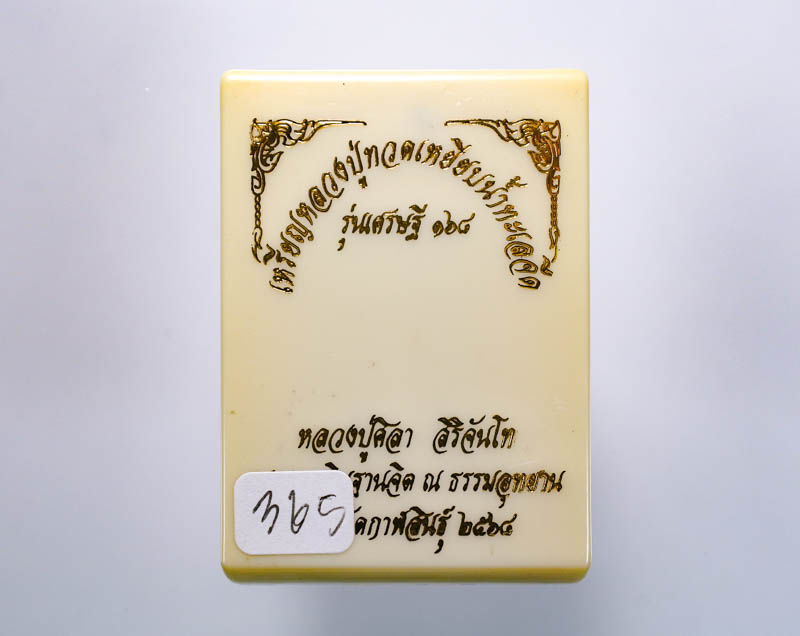 เหรียญหลวงปู่ทวดเหยียบน้ำทะเลจืด
รุ่นเศรษฐี ๑๖๘
หลวงปู่ศิลา สิริจันโท
ณ ธรรมอุทยาน
๒๕๖๔
365